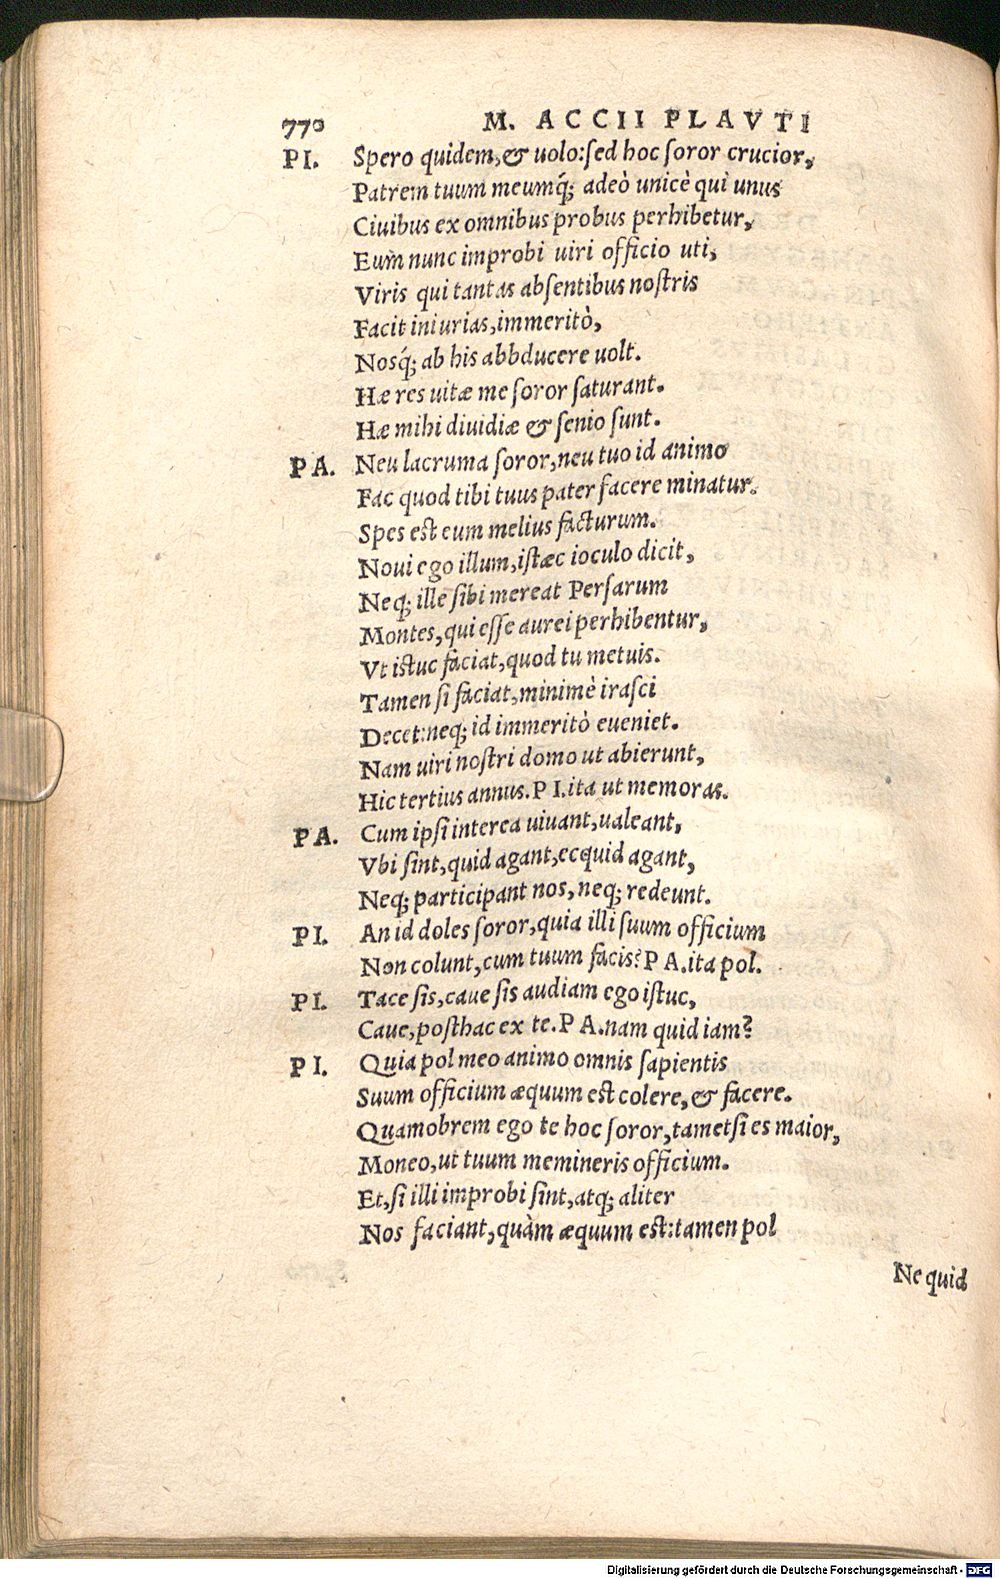 770 M. ACCII PLAVTI
PI. Spero quidem,& uolo:sed hoc soror crucior,
Patrem tuum meumq́; adeò unicè qui unus
Ciuibus ex omnibus probus perhibetur,
Eum nunc improbi uiri officio uti,
Viris qui tantas absentibus nostris
Facit iniurias,immeritò,
Nosq́; ab his abbducere uolt.
Hæ res uitæ me soror saturant.
Hæ mihi diuidiæ & senio sunt.
PA. Neu lacruma soror,neu tuo id animo
Fac quod tibi tuus pater facere minatur.
Spes est eum melius facturum.
Noui ego illum,istæc ioculo dicit,
Neq; ille sibi mereat Persarum
Montes,qui esse aurei perhibentur,
Vt istuc faciat,quod tu metuis.
Tamen si faciat,minimè irasci
Decet:neq; id immeritò eueniet.
Nam uiri nostri domo ut abierunt,
Hic tertius annus.PI.ita ut memoras.
PA. Cum ipsi interea uiuant,ualeant,
Vbi sint,quid agant,ecquid agant,
Neq; participant nos,neq; redeunt.
PI. An id doles soror,quia illi suum officium
Non colunt,cum tuum facis?PA.ita pol.
PI. Tace sis,caue sis audiam ego istuc,
Caue,posthac ex te.PA.nam quid iam?
PI. Quia pol meo animo omnis sapientis
Suum officium æquum est colere,& facere.
Quamobrem ego te hoc soror,tametsi es maior,
Moneo,ut tuum memineris officium.
Et,si illi improbi sint,atq; aliter
Nos faciant,quàm æquum est:tamen pol
Ne quid
Digitalisierung gefördert durch die Deutsche Forschungsgemeinschaft - DFG